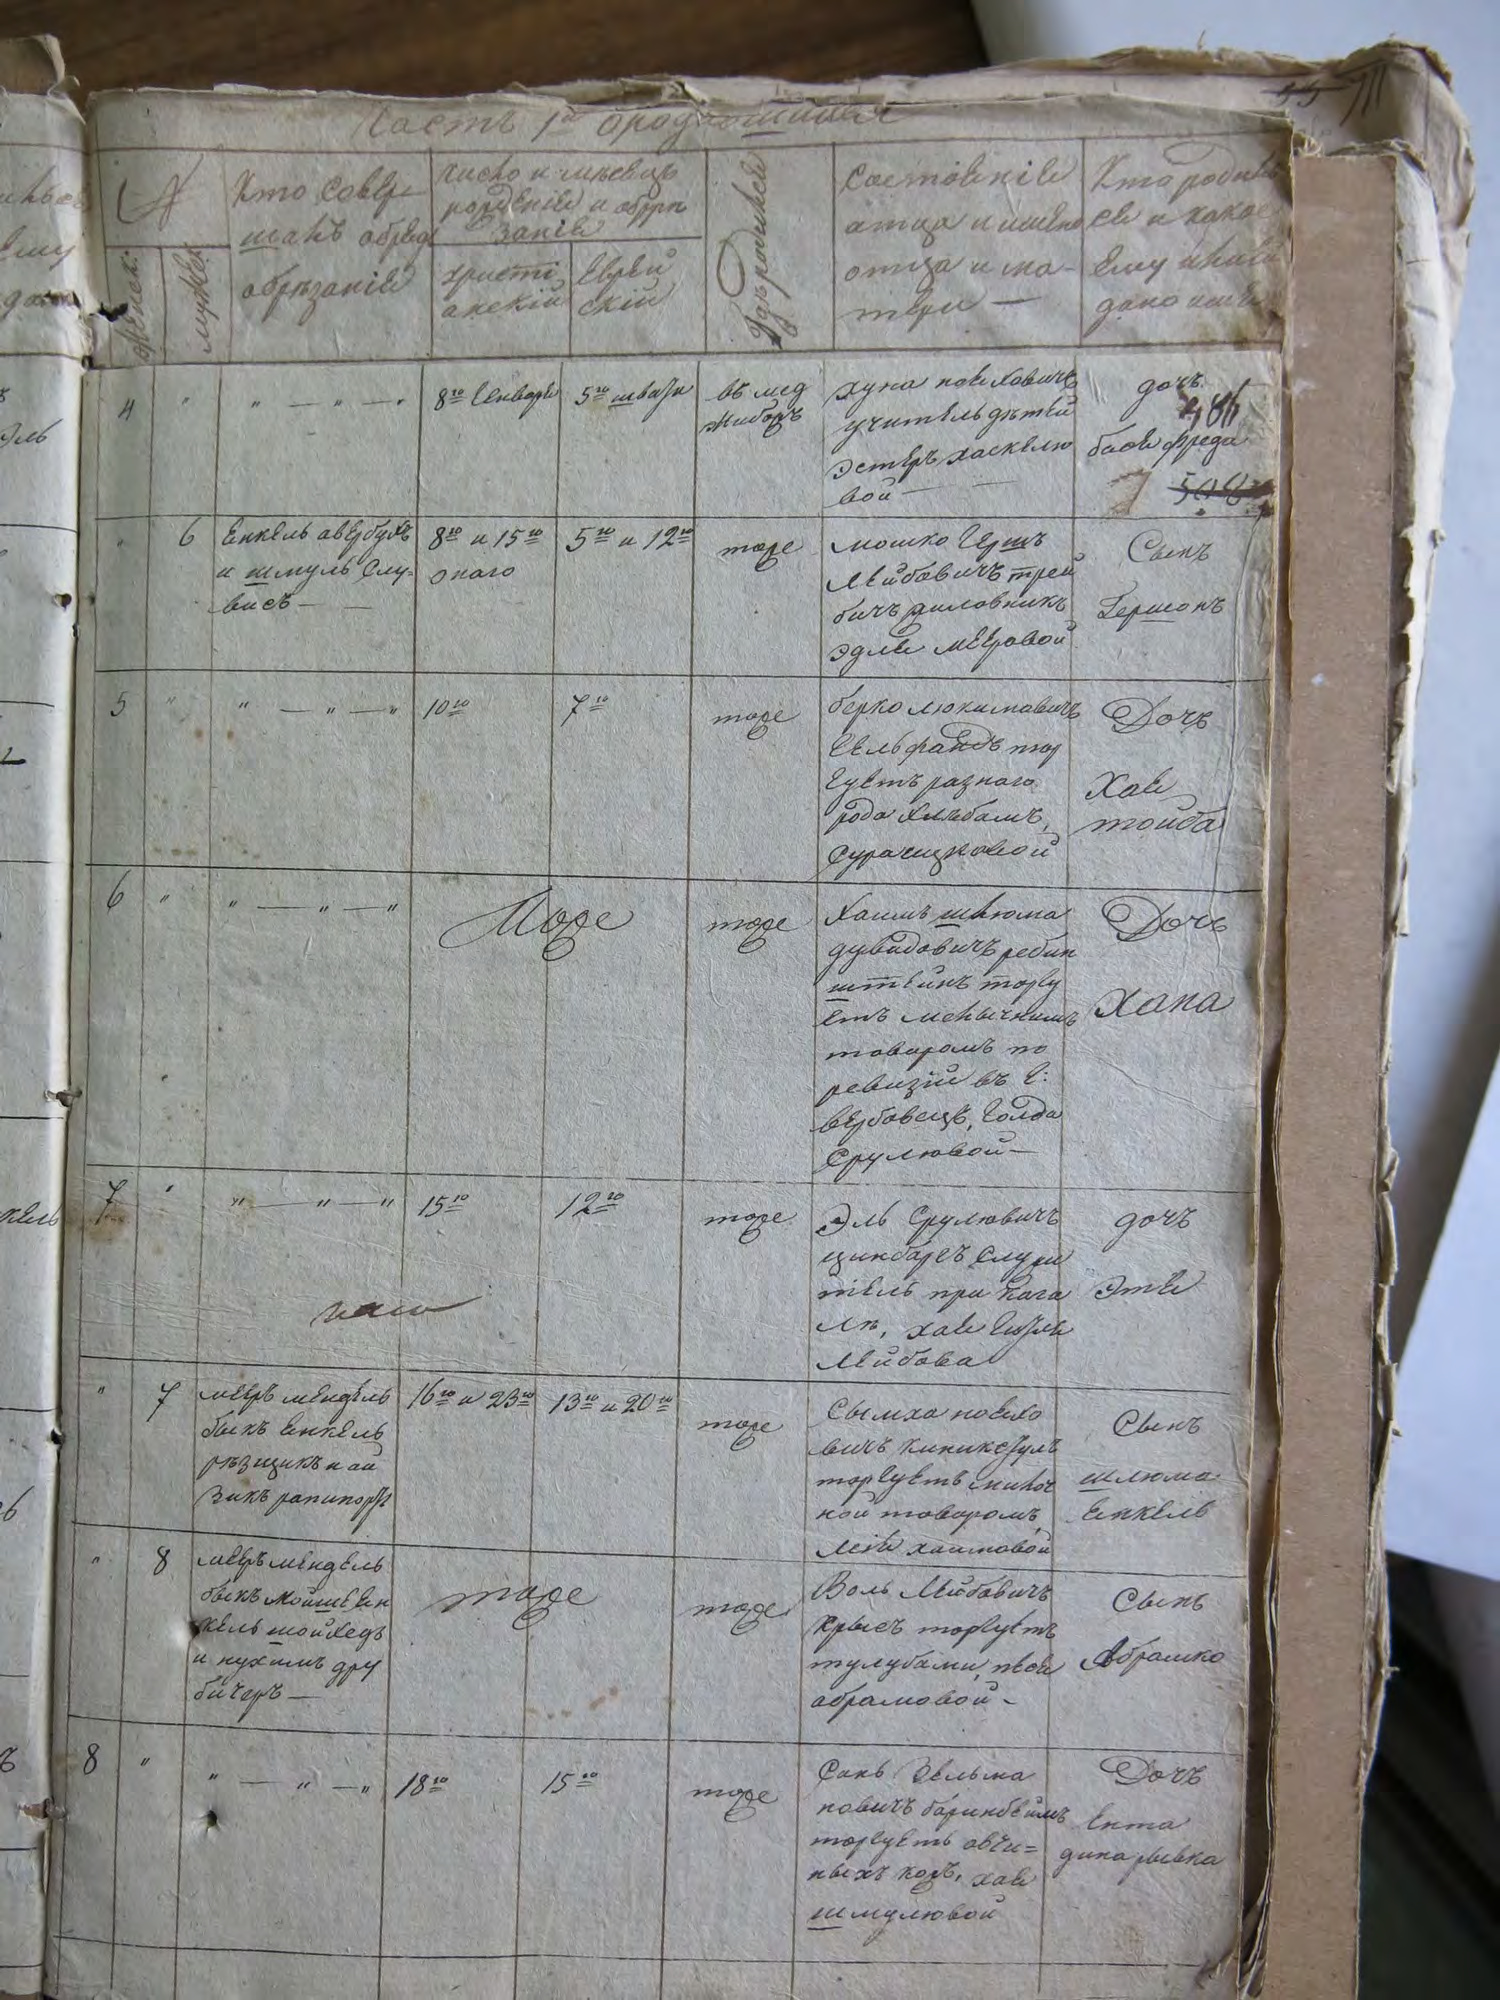 Часть 1я о родившихся
№
женск:
мужск:
Кто совер
шалъ обрядъ
обрѣзанія
число и мѣсяцъ
рожденія и обрѣ
занія
христі
анскій
еврей
скій
Гдѣ родился
Состояніе
отца и имена
отца и ма-
тери —
Кто родил
ся и какое
ему или ей
дано имя
4 " " — " — "
8го Генваря
5го швата
въ мед
жибожъ
учитель дѣтей
эстеръ хаскелю
вой —
дочь
бася фрейда
" 6
Енкель авербухъ
и шмуль Слу-
висъ —
8го и 15го
онаго
5го и 12го
тоже
мошко Гершъ
Лейбовичъ трей
бичъ
эдля мееровой
Сынъ
Гершонъ
5 " " — " — "
10го
7го
тоже
берко
Гельфандъ тор
гуетъ разнаго
рода хлѣбамъ,
сура ицковой
Дочь
Хая
тойба
6 " " — " — "
Тоже
тоже
Хаимъ шлюма
дувидовичъ рейбин
штейнъ торгу
етъ мелычнимъ
товаромъ по
ревизіи въ г:
вербовецъ, Голда
Срулювой —
Дочь
Хана
7 " " — " — "
15го
12го
тоже
Эль Срулювичъ
цимбаръ Служи
тель при Кага
лѣ, хая
Лейбова
дочь
Этя
" 7
мееръ мендель
быкъ Енкель
рѣзщикъ и ай
зикъ рапипортъ
16го и 23го
13го и 20го
тоже
Сымха
вичъ
торгуетъ
ной товаромъ,
хаимовой
Сынъ
шлюма
Енкель
" 8
мееръ мендель
быкъ мойше Ен
кель шойхедъ
и нухимъ дру
бичеръ —
тоже
тоже
Воль Лейбовичъ
крысъ торгуетъ
тулубами, песя
абрамовой —
Сынъ
Абрамко
8 " " — " — "
18го
15го
тоже
Зельма
новичъ
торгуетъ овчи=
ныхъ кожъ, хая
шмулювой
Дочь
Ента
дина рывка